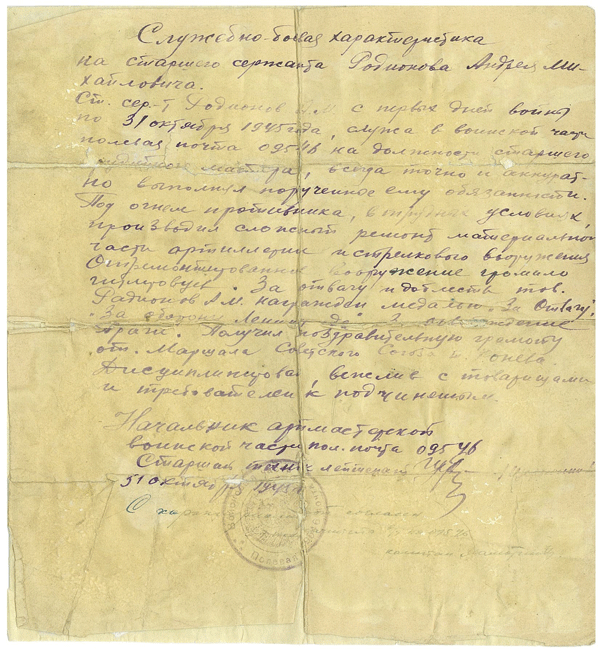 Служебно-боевая характеристика
на старшего сержанта Родионова Андрея Ми-
хайловича.
Ст. сер-т Родионов А.М с первых дней войны
по 31 октября 1945 года, служа в воинской части
полевая почта 09546 на должности старшего
мастера, всегда точно и аккурат-
но выполнял порученное ему обязанности.
Под огнем противника, в трудных условиях,
производил сложный ремонт материальной
части артиллерии и стрелкового вооружения
Отремонтированное вооружение громило
гитлеровцев. За отвагу и доблесть тов.
Радионов А.М. награжден медалью "За Отвагу",
"За оборону Ленинграда"
Праги. Получил поздравительную грамоту
от Маршала Советского Союза Конева
Дисциплинирован, вежлив с товарищами
и требователен к подчиненым.
Начальник артмастерской
воинской части пол. почта 09546
Старший техник лейтенант
31 октября 1945г
С характеристикой согласен
09546
капитан